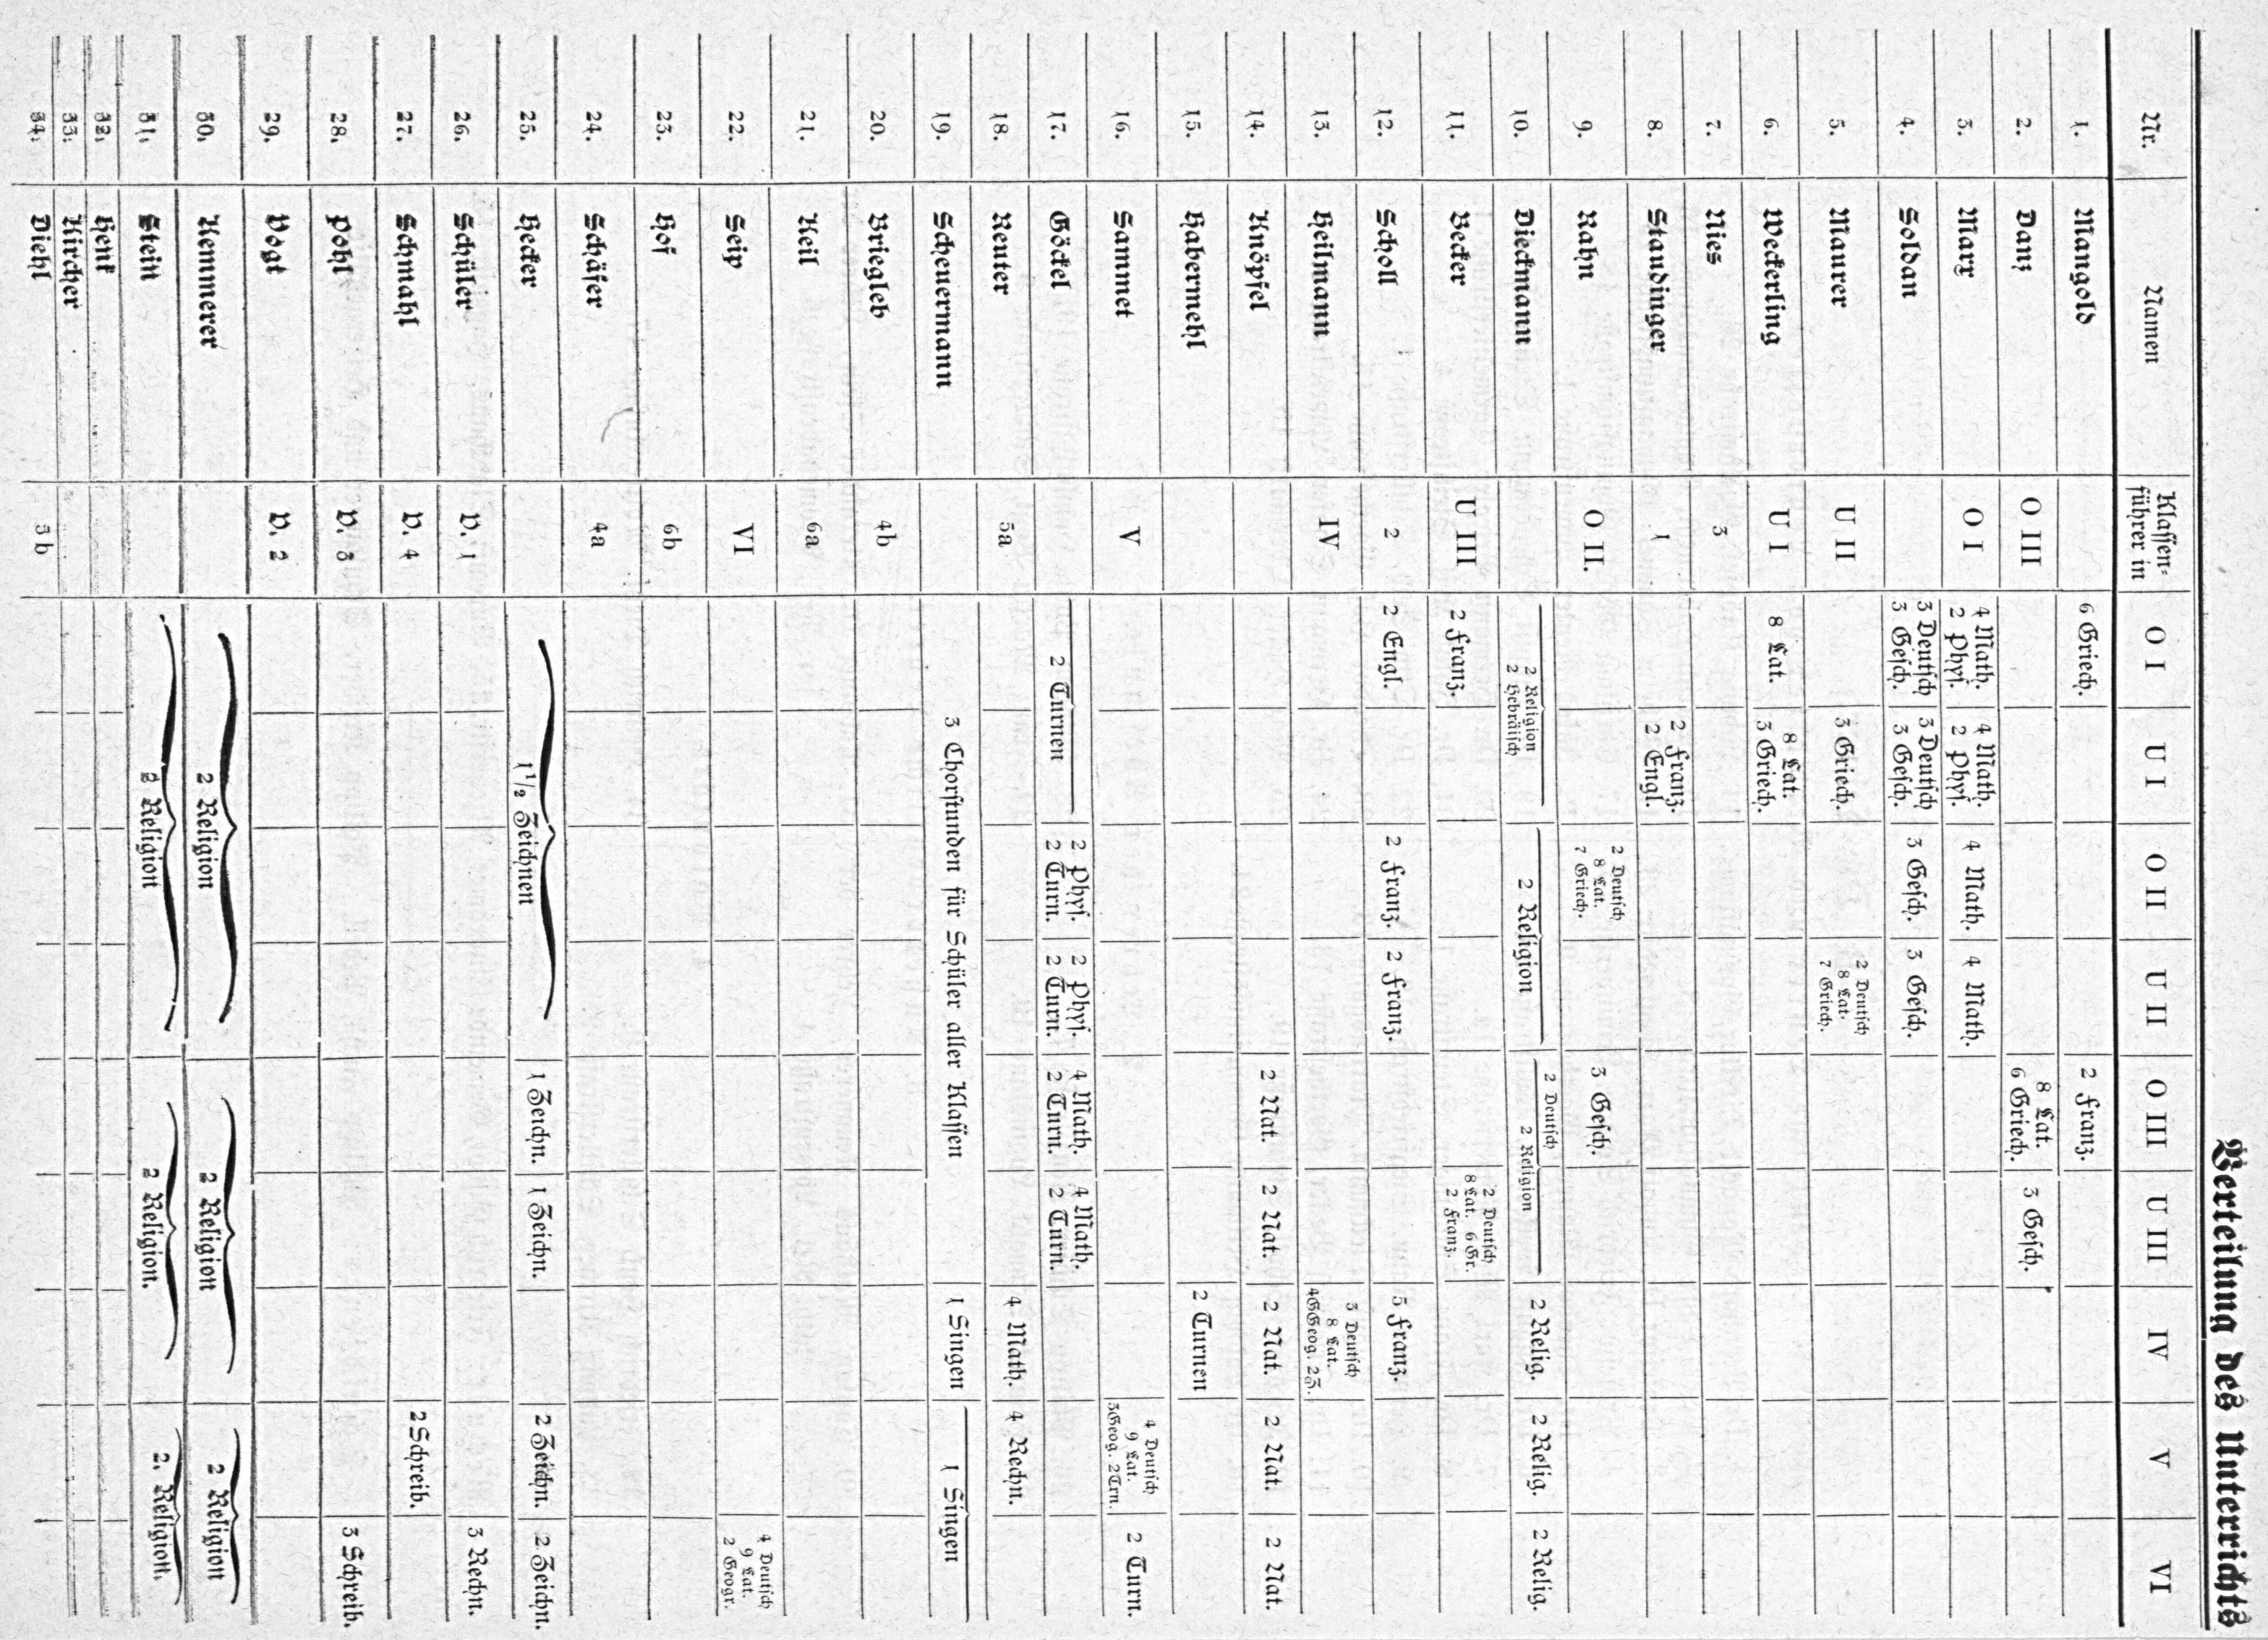 Verteilung des Unterrichts
Nr. Namen Klassen-
führer in O I U I O II U II O III U III IV V VI
1. Mangold 6 Griech. 2 Franz.
2. Danz O III 8 Lat.
6 Griech. 3 Gesch.
3. Marx O I 4 Math.
2 Phys. 4 Math.
2 Phys. 4 Math. 4 Math.
4. Soldan 3 Deutsch
3 Gesch. 3 Deutsch
3 Gesch. 3 Gesch. 3 Gesch.
5. Maurer U II 3 Griech. 2 Deutsch
8 Lat.
7 Griech.
6. Weckerling U I 8 Lat. 8 Lat.
3 Griech.
7. Nies 3
8. Staudinger 1 2 Franz.
2 Engl.
9. Rahn O II. 2 Deutsch
8 Lat.
7 Griech. 3 Gesch.
10. Dieckmann 2 Religion
2 Hebräisch 2 Religion 2 Deutsch
2 Religion 2 Relig. 2 Relig. 2 Relig.
11. Becker U III 2 Franz. 2 Deutsch
8 Lat. 6 Gr.
2 Franz.
12. Scholl 2 2 Engl. 2 Franz. 2 Franz. 5 Franz.
13. Heilmann IV 3 Deutsch
8 Lat.
4 Geog. 2 Z.
14. Knöpfel 2 Nat. 2 Nat. 2 Nat. 2 Nat. 2 Nat.
15. Habermehl 2 Turnen
16. Sammet V 4 Deutsch
9 Lat.
3 Geog. 2 Trn. 2 Turn.
17. Göckel 2 Turnen 2 Phys.
2 Turn. 2 Phys.
2 Turn. 4 Math.
2 Turn. 4 Math.
2 Turn.
18. Reuter 5a 4 Math. 4 Rechn.
19. Scheuermann 3 Chorstunden für Schüler aller Klassen 1 Singen 1 Singen
20. Briegleb 4b
21. Keil 6a
22. Seip VI 4 Deutsch
9 Lat.
2 Geogr.
23. Hof 6b
24. Schäfer 4a
25. Hecker 1 1/2 Zeichnen 1 Zeichn. 1 Zeichn. 2 Zeichn. 2 Zeichn.
26. Schüler V. 1 3 Rechn.
27. Schmahl V. 4 2 Schreib.
28. Pohl V. 3 3 Schreib.
29. Vogt V. 2
30. Kemmerer 2 Religion 2 Religion 2 Religion
31. Stein 2 Religion 2 Religion. 2. Religion.
32. Henk
33. Kircher
34. Diehl 5b